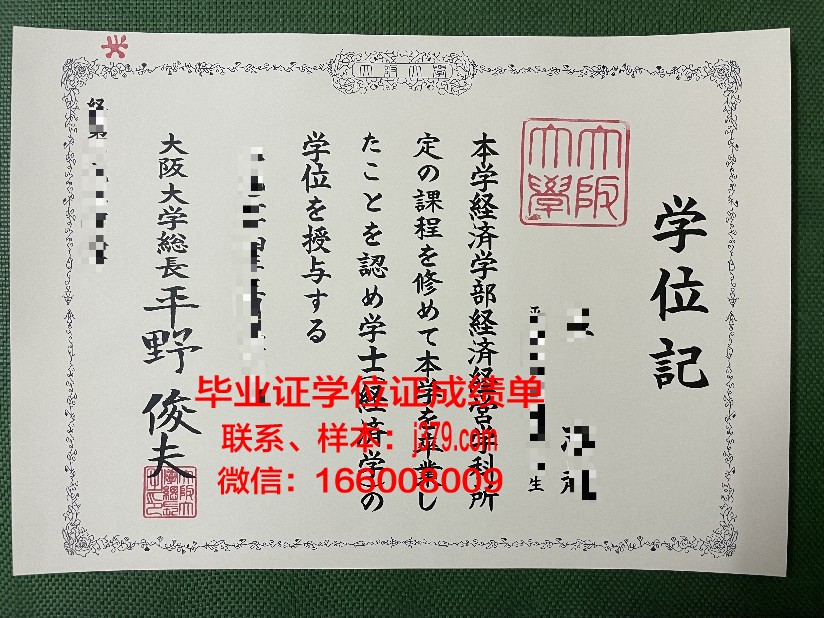 学位記
大阪
大學
平
生
本学経済学部経済経営学科所
定の課程を修めて本学を卒業し
たことを認め学士(経済学)の
学位を授与する
大阪大学総長 平野俊夫
毕业证学位证成绩单
联系、样本：j379.com
微信：166008009